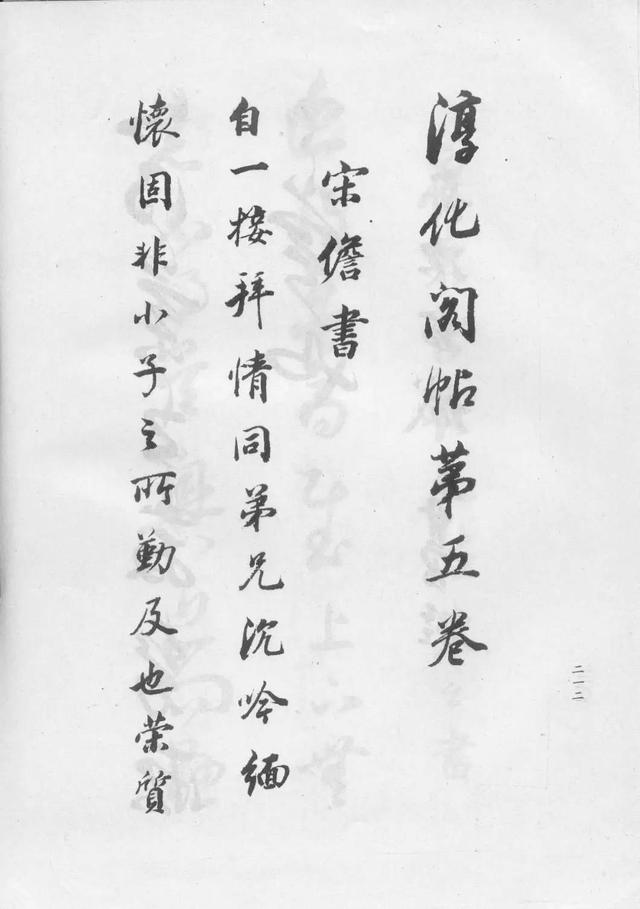 淳化阁帖第五卷
宋儋書
自一接拜情同弟兄沉吟緬
懐固非小子之所勤及也荣質
二一二